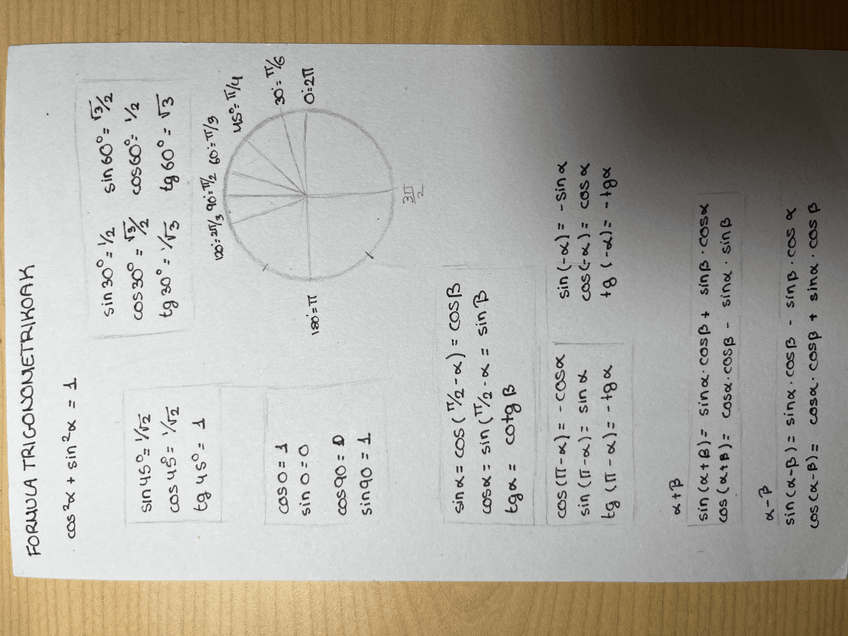 FORMULA TRIGONOMETRIKOAK
cos²α + sin²α = 1
sin 45° = 1/√2
cos 45° = 1/√2
tg 45° = 1
sin 30° = 1/2
cos 30° = √3/2
tg 30° = 1/√3
sin 60° = √3/2
cos 60° = 1/2
tg 60° = √3
cos 0 = 1
sin 0 = 0
cos 90 = 0
sin 90 = 1
120° = 2π/3
90° = π/2
60° = π/3
45° = π/4
30° = π/6
0° = 2π
180° = π
3π/2
sin α = cos (π/2 - α) = cos β
cos α = sin (π/2 - α = sin β
tg α = cotg β
cos (π - α) = - cos α
sin (π - α) = sin α
tg (π - α) = - tg α
sin (-α) = - sin α
cos (-α) = cos α
tg (-α) = - tg α
α + β
sin (α + β) = sin α · cos β + sin β · cos α
cos (α + β) = cos α · cos β - sin α · sin β
α - β
sin (α - β) = sin α · cos β - sin β · cos α
cos (α - β) = cos α · cos β + sin α · cos β